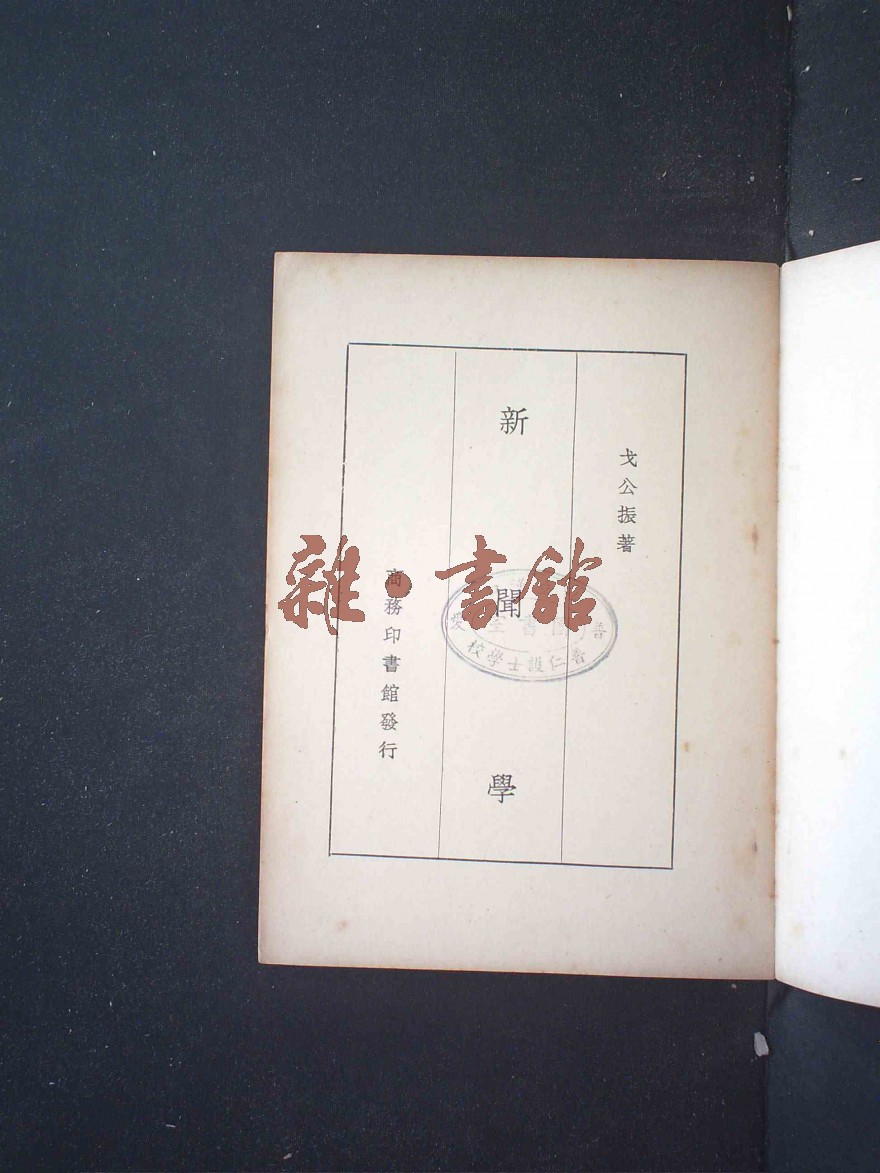 戈公振著
新聞學
商務印書館發行
雜·書館
圖書室
普仁護士學校